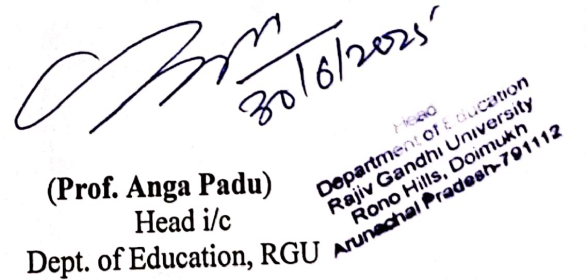 30/6/2025
(Prof. Anga Padu)
Head i/c
Dept. of Education, RGU
Head
Department of Education
Rajiv Gandhi University
Rono Hills, Doimukh
Arunachal Pradesh-791112